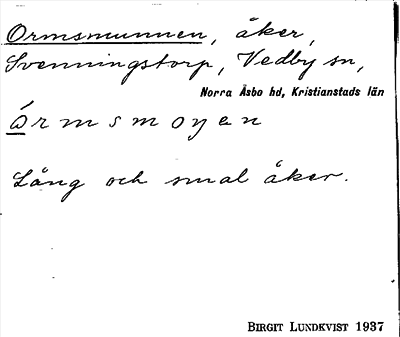 Ormsmunnen, åker,
Svenningstorp, Vedby sn,
Norra Åsbo hd, Kristianstads län
Långs och smal åker.
BIRGIT LUNDKVIST 1937